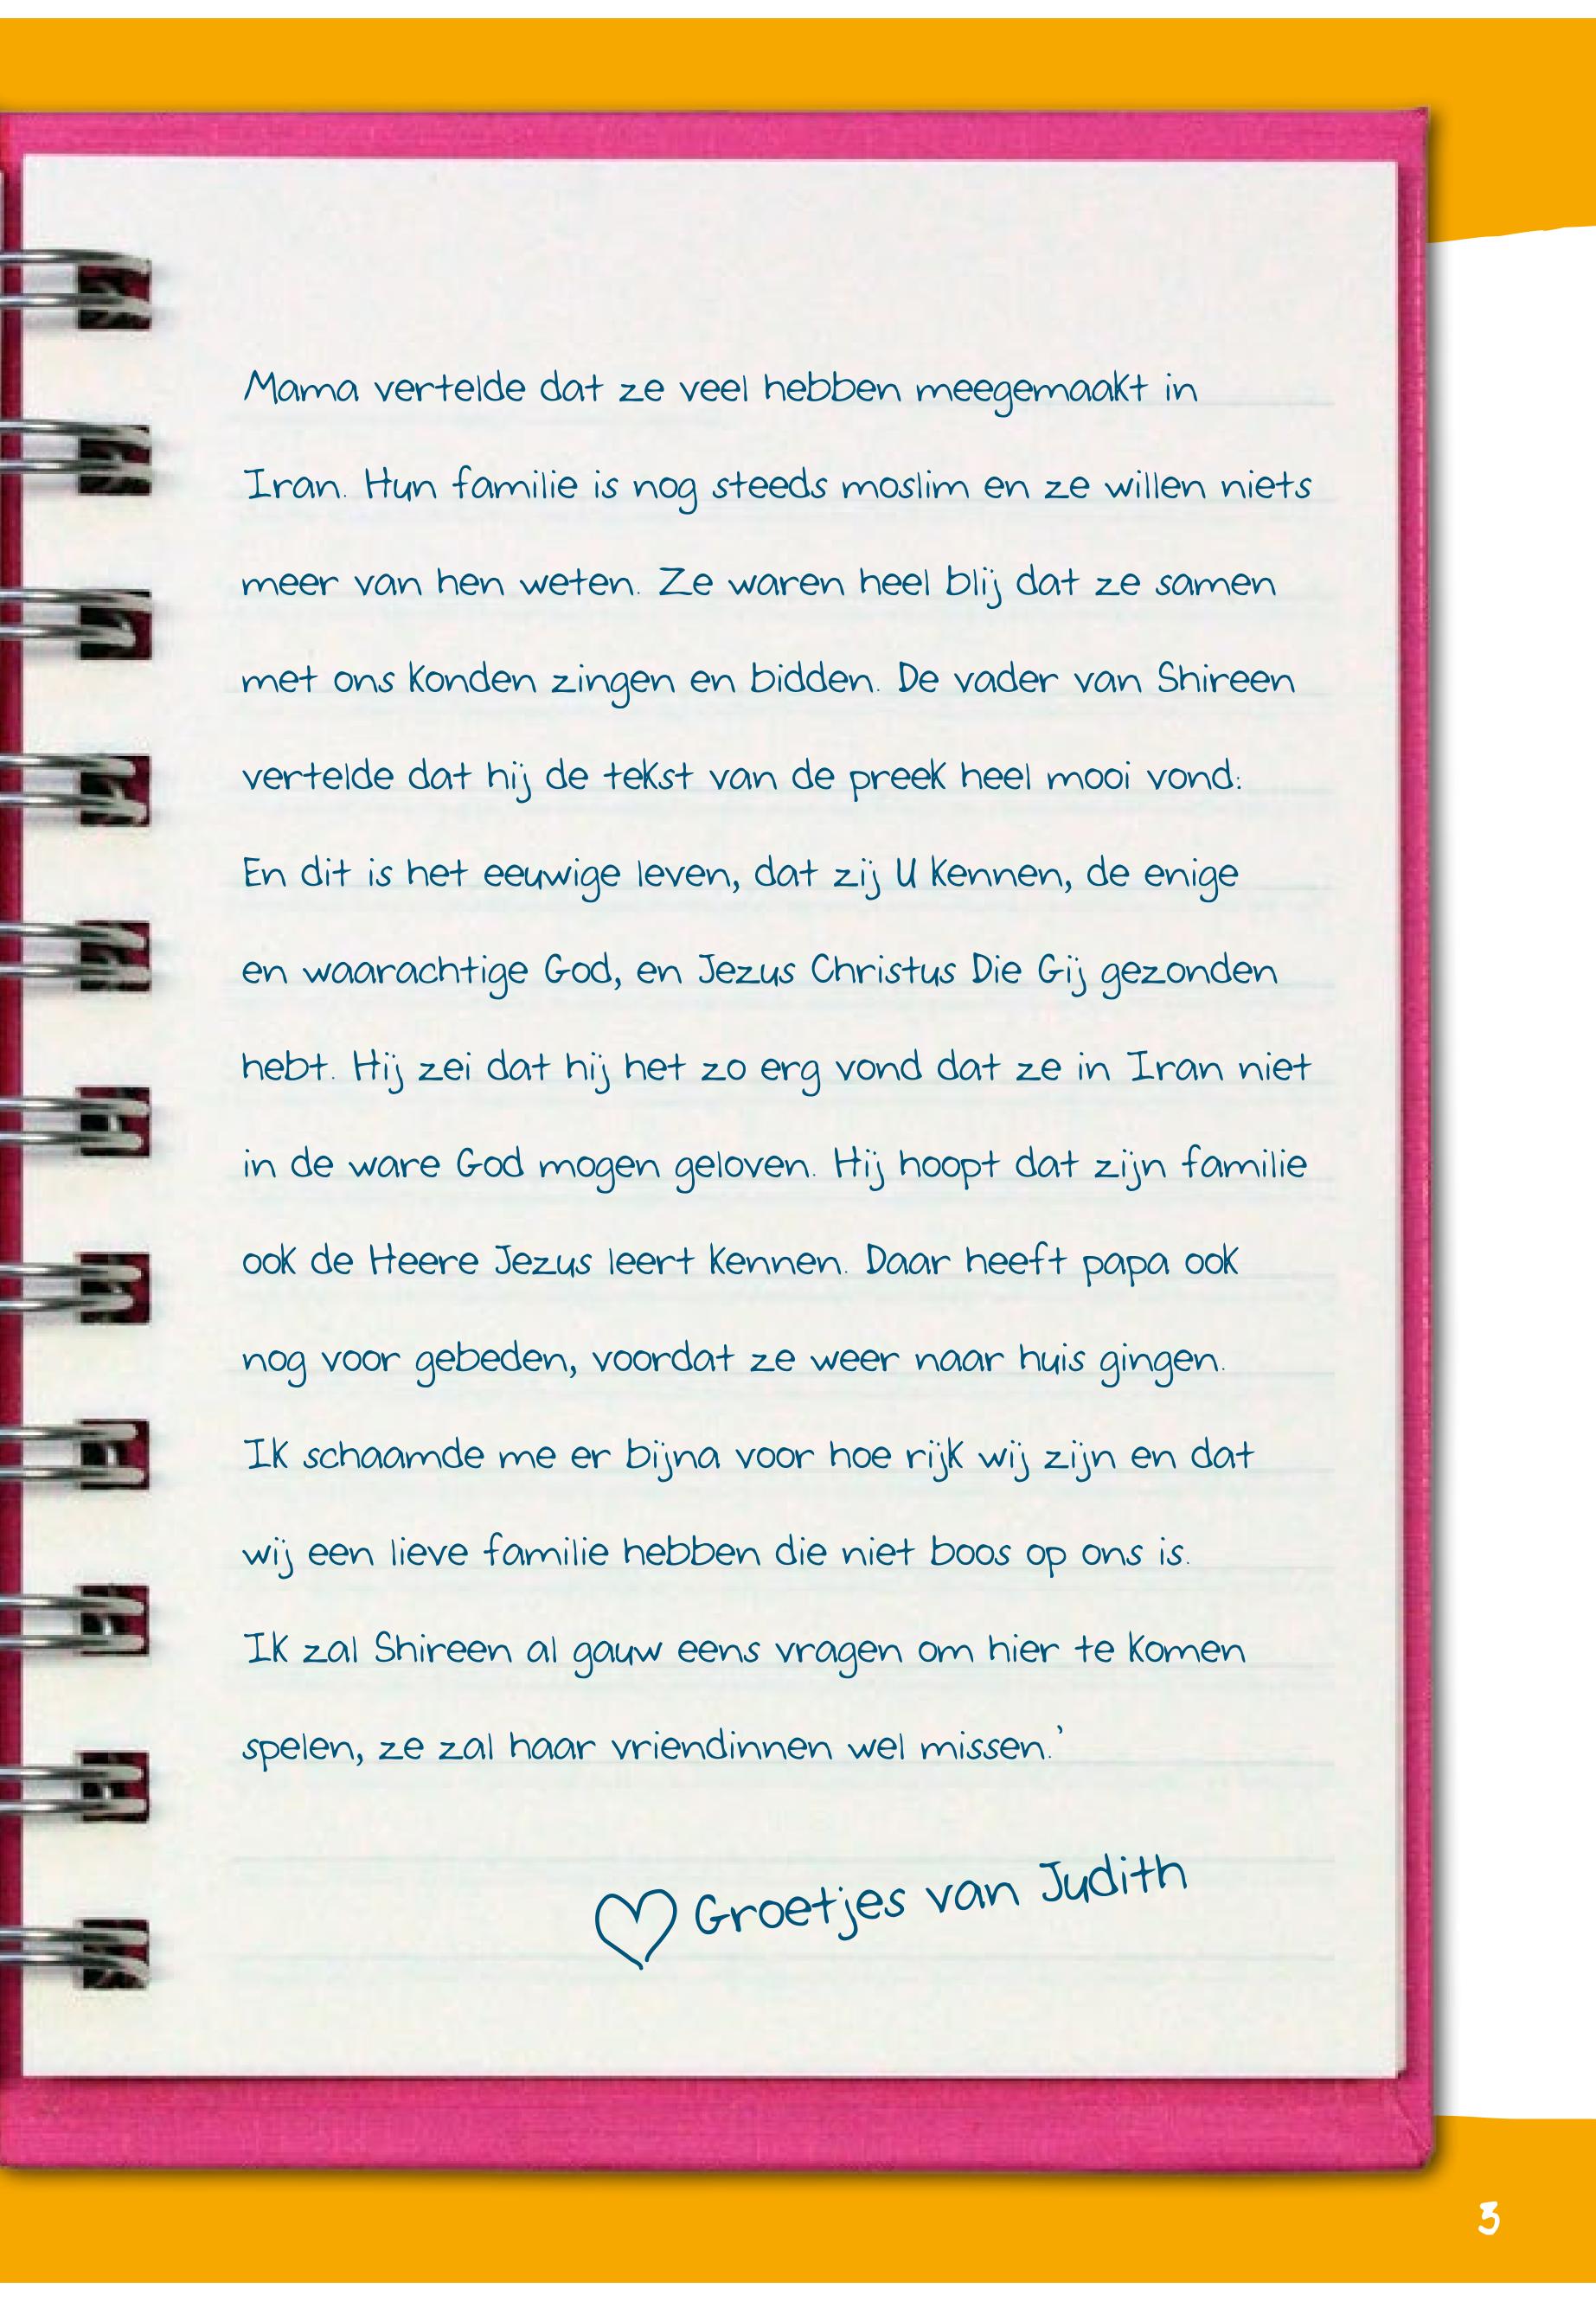 Mama vertelde dat ze veel hebben meegemaakt in
Iran. Hun familie is nog steeds moslim en ze willen niets
meer van hen weten. Ze waren heel blij dat ze samen
met ons konden zingen en bidden. De vader van Shireen
vertelde dat hij de tekst van de preek heel mooi vond:
En dit is het eeuwige leven, dat zij U kennen, de enige
en waarachtige God, en Jezus Christus Die Gij gezonden
hebt. Hij zei dat hij het zo erg vond dat ze in Iran niet
in de ware God mogen geloven. Hij hoopt dat zijn familie
ook de Heere Jezus leert kennen. Daar heeft papa ook
nog voor gebeden, voordat ze weer naar huis gingen.
Ik schaamde me er bijna voor hoe rijk wij zijn en dat
wij een lieve familie hebben die niet boos op ons is.
Ik zal Shireen al gauw eens vragen om hier te komen
spelen, ze zal haar vriendinnen wel missen.'
Groetjes van Judith
3